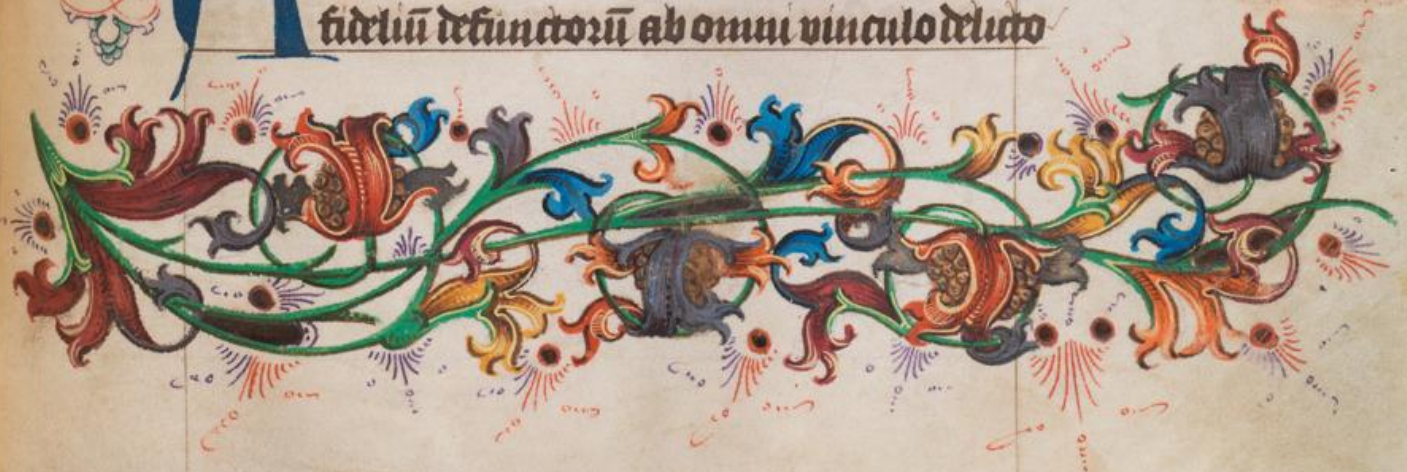 A
fideliū defunctorū ab omni vinculo delicto